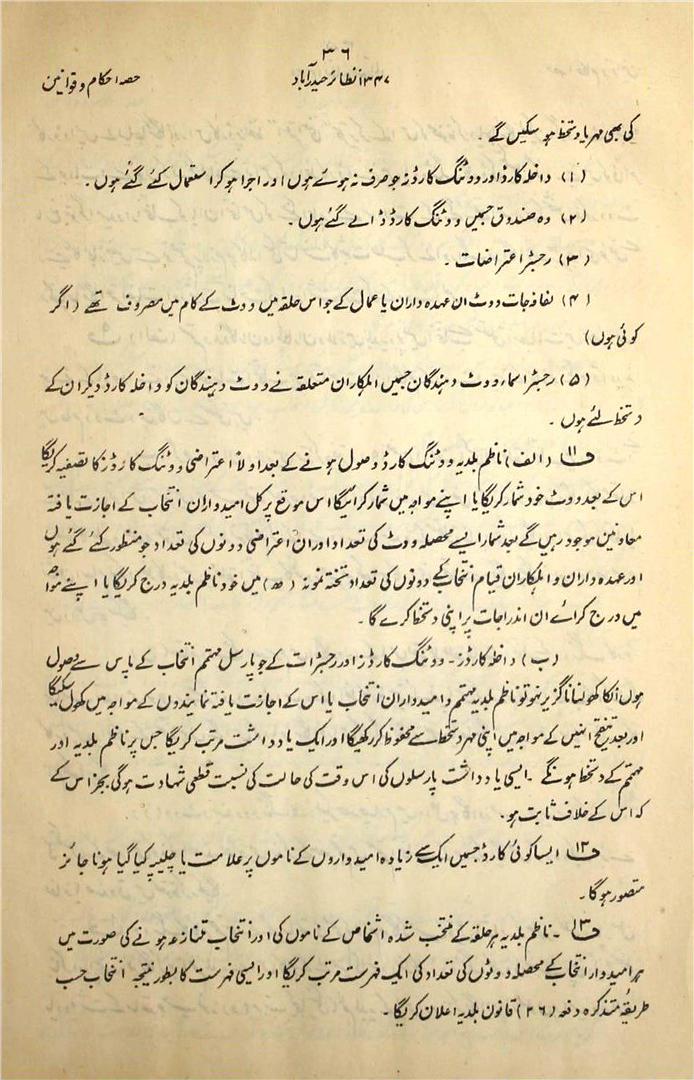 ۳۶
۱۳۴۷ف نظائر حیدرآباد
حصہ احکام و قوانین
کی بھی مہر یا دستخط ہو سکیں گے ۔
(۱) داخلہ کارڈ اور ووٹنگ کارڈ نہ جو صرف نہ ہوئے ہوں اور اجرا ہو کر استعمال کئے گئے ہوں ۔
(۲) وہ صندوق جسمیں ووٹنگ کارڈ ڈالے گئے ہوں ۔
(۳) رجسٹر اعتراضات ۔
(۴) لفافہ جات ووٹ ان عہدہ داران یا عمال کے جو اس حلقہ میں ووٹ کے کام میں مصروف تھے (اگر
کوئی ہوں)
(۵) رجسٹر اسماء ووٹ دہندگان جسمیں اہلکاران متعلقہ نے ووٹ دہندگان کو داخلہ کارڈ دیکر ان کے
دستخط لئے ہوں ۔
ف۱۱ (الف) ناظم بلدیہ ووٹنگ کارڈ وصول ہونے کے بعد اولاً اعتراضی ووٹنگ کارڈز کا تصفیہ کریگا
اس کے بعد ووٹ خود شمار کریگا یا اپنے مواجہ میں شمار کرائیگا اس موقع پر کل امیدواران انتخاب کے اجازت یافتہ
معاونین موجود رہیں گے بعد شمار ایسے محصلہ ووٹ کی تعداد اور ان اعتراضی ووٹوں کی تعداد جو منظور کئے گئے ہوں
اور عہدہ داران و اہلکاران قیام انتخاب کے ووٹوں کی تعداد تختہ نمونہ (ھ) میں خود ناظم بلدیہ درج کریگا یا اپنے مواجہ
میں درج کرائے ان اندراجات پر اپنی دستخط کرے گا ۔
(ب) داخلہ کارڈز ۔ ووٹنگ کارڈز اور رجسٹرات کے جو پارسل مہتمم انتخاب کے پاس سے وصول
ہوں انکا کھولنا ناگزیر ہو تو ناظم بلدیہ مہتمم و امیدواران انتخاب یا اس کے اجازت یافتہ نمایندوں کے مواجہ میں کھول سکیگا
اور بعد تنقیح انہیں کے مواجہ میں اپنی مہر و دستخط سے محفوظ کر رکھیگا اور ایک یادداشت مرتب کریگا جس پر ناظم بلدیہ اور
مہتمم کے دستخط ہونگے ۔ ایسی یادداشت پارسلوں کی اس وقت کی حالت کی نسبت قطعی شہادت ہوگی بجز اس کے
کہ اس کے خلاف ثابت ہو ۔
ف۱۲ ایسا کوئی کارڈ جسمیں ایک سے زیادہ امیدواروں کے ناموں پر علامت یا چلیپہ کیا گیا ہو ناجائز
متصور ہوگا ۔
ف۱۳ ۔ ناظم بلدیہ ہر حلقہ کے منتخب شدہ اشخاص کے ناموں کی اور انتخاب متنازعہ ہونے کی صورت میں
ہر امیدوار انتخاب کے محصلہ ووٹوں کی تعداد کی ایک فہرست مرتب کریگا اور ایسی فہرست کا بطور نتیجہ انتخاب حسب
طریقہ متذکرہ دفعہ (۲۶) قانون بلدیہ اعلان کریگا ۔